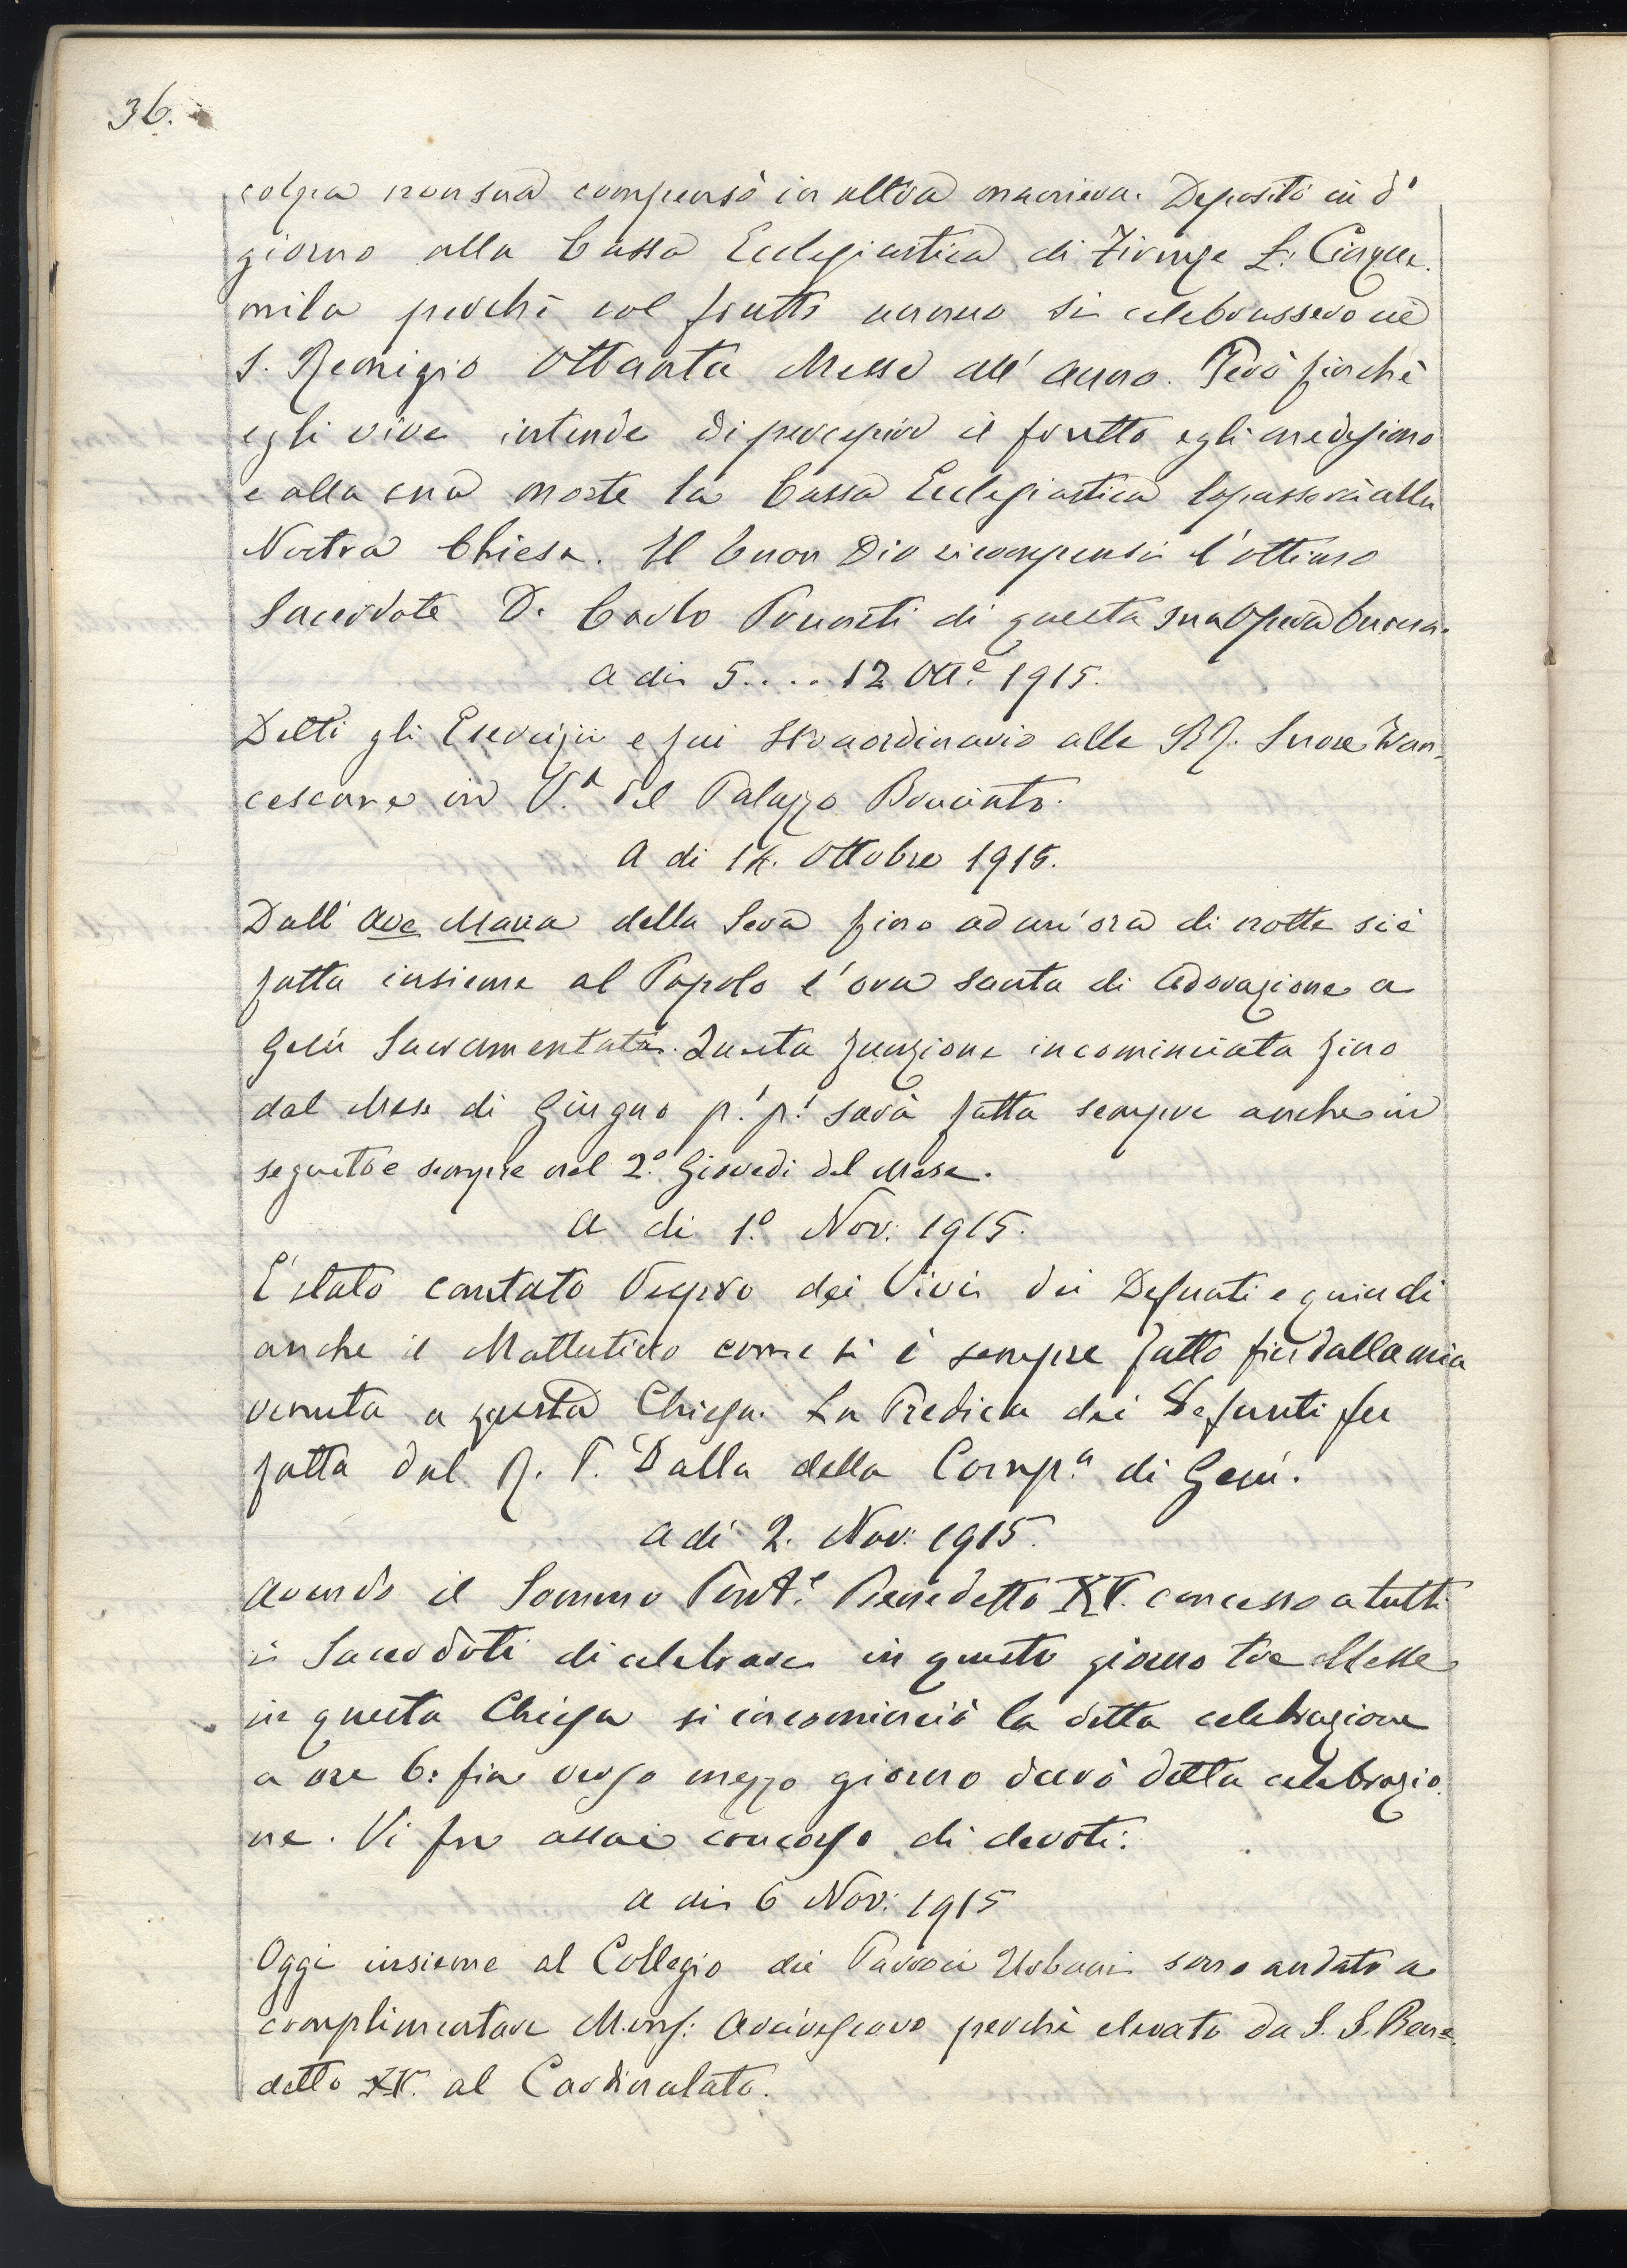 36.
colpa non sua compensò in altra maniera. Depositò in d.º
giorno alla Cassa Ecclesiastica di Firenze L: Cinque-
mila perchè col frutto annuo si celebrassero in
S. Remigio Ottanta Messe all' anno. Però finchè
egli vive intende di percepire il frutto egli medesimo
e alla sua morte la Cassa Ecclesiastica lo passerà alla
Nostra Chiesa. Il buon Dio ricompensi l'ottimo
Sacerdote D. Carlo di questa sua Opera buona.
A di 5.... 12 Ott.e 1915.
Detti gli Esercizii e fui Straordinario alle RR. Suore Fran-
cescane in V.a del Palazzo Bruciato.
A di 14. Ottobre 1915.
Dall' Ave Maria della Sera fino ad un'ora di notte si è
fatta insieme al Popolo l'ora santa di Adorazione a
Gesù Sacramentato. Questa funzione incominciata fino
dal Mese di Giugno p.º p.º sarà fatta sempre anche in
seguito e sempre nel 2.º Giovedi del Mese.
A di 1.º Nov: 1915.
È stato cantato Vespro dei Vivi dei Defunti e quindi
anche il Mattutino come si è sempre fatto fin dalla mia
venuta a questa Chiesa. La Predica dei Defunti fu
fatta dal R. P. Dalla della Comp.a di Gesù.
A di 2. Nov: 1915.
Avendo il Sommo Pont.e Benedetto XV. concesso a tutti
i Sacerdoti di celebrare in questo giorno tre Messe
in questa Chiesa si incominciò la detta celebrazione
a ore 6: fin verso mezzo giorno durò detta celebrazio-
ne. Vi fu assai concorso di devoti.
A di 6 Nov: 1915
Oggi insieme al Collegio dei Parroci Urbani sono andato a
complimentare Mons: Arcivescovo perchè elevato da S. S. Bene-
detto XV. al Cardinalato.